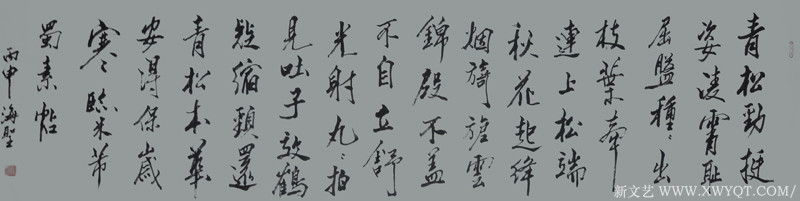 青松勁挺
姿凌霄耻
屈盤種々出
枝葉牽
連上松端
秋花起絳
烟旖旎雲
錦殷不羞
不自立舒
光射丸々柏
見吐子效鶴
疑縮頸還
青松本華
安得保歲
寒 臨米芾
蜀素帖
丙申海聖
新文艺 WWW.XWYQT.COM/